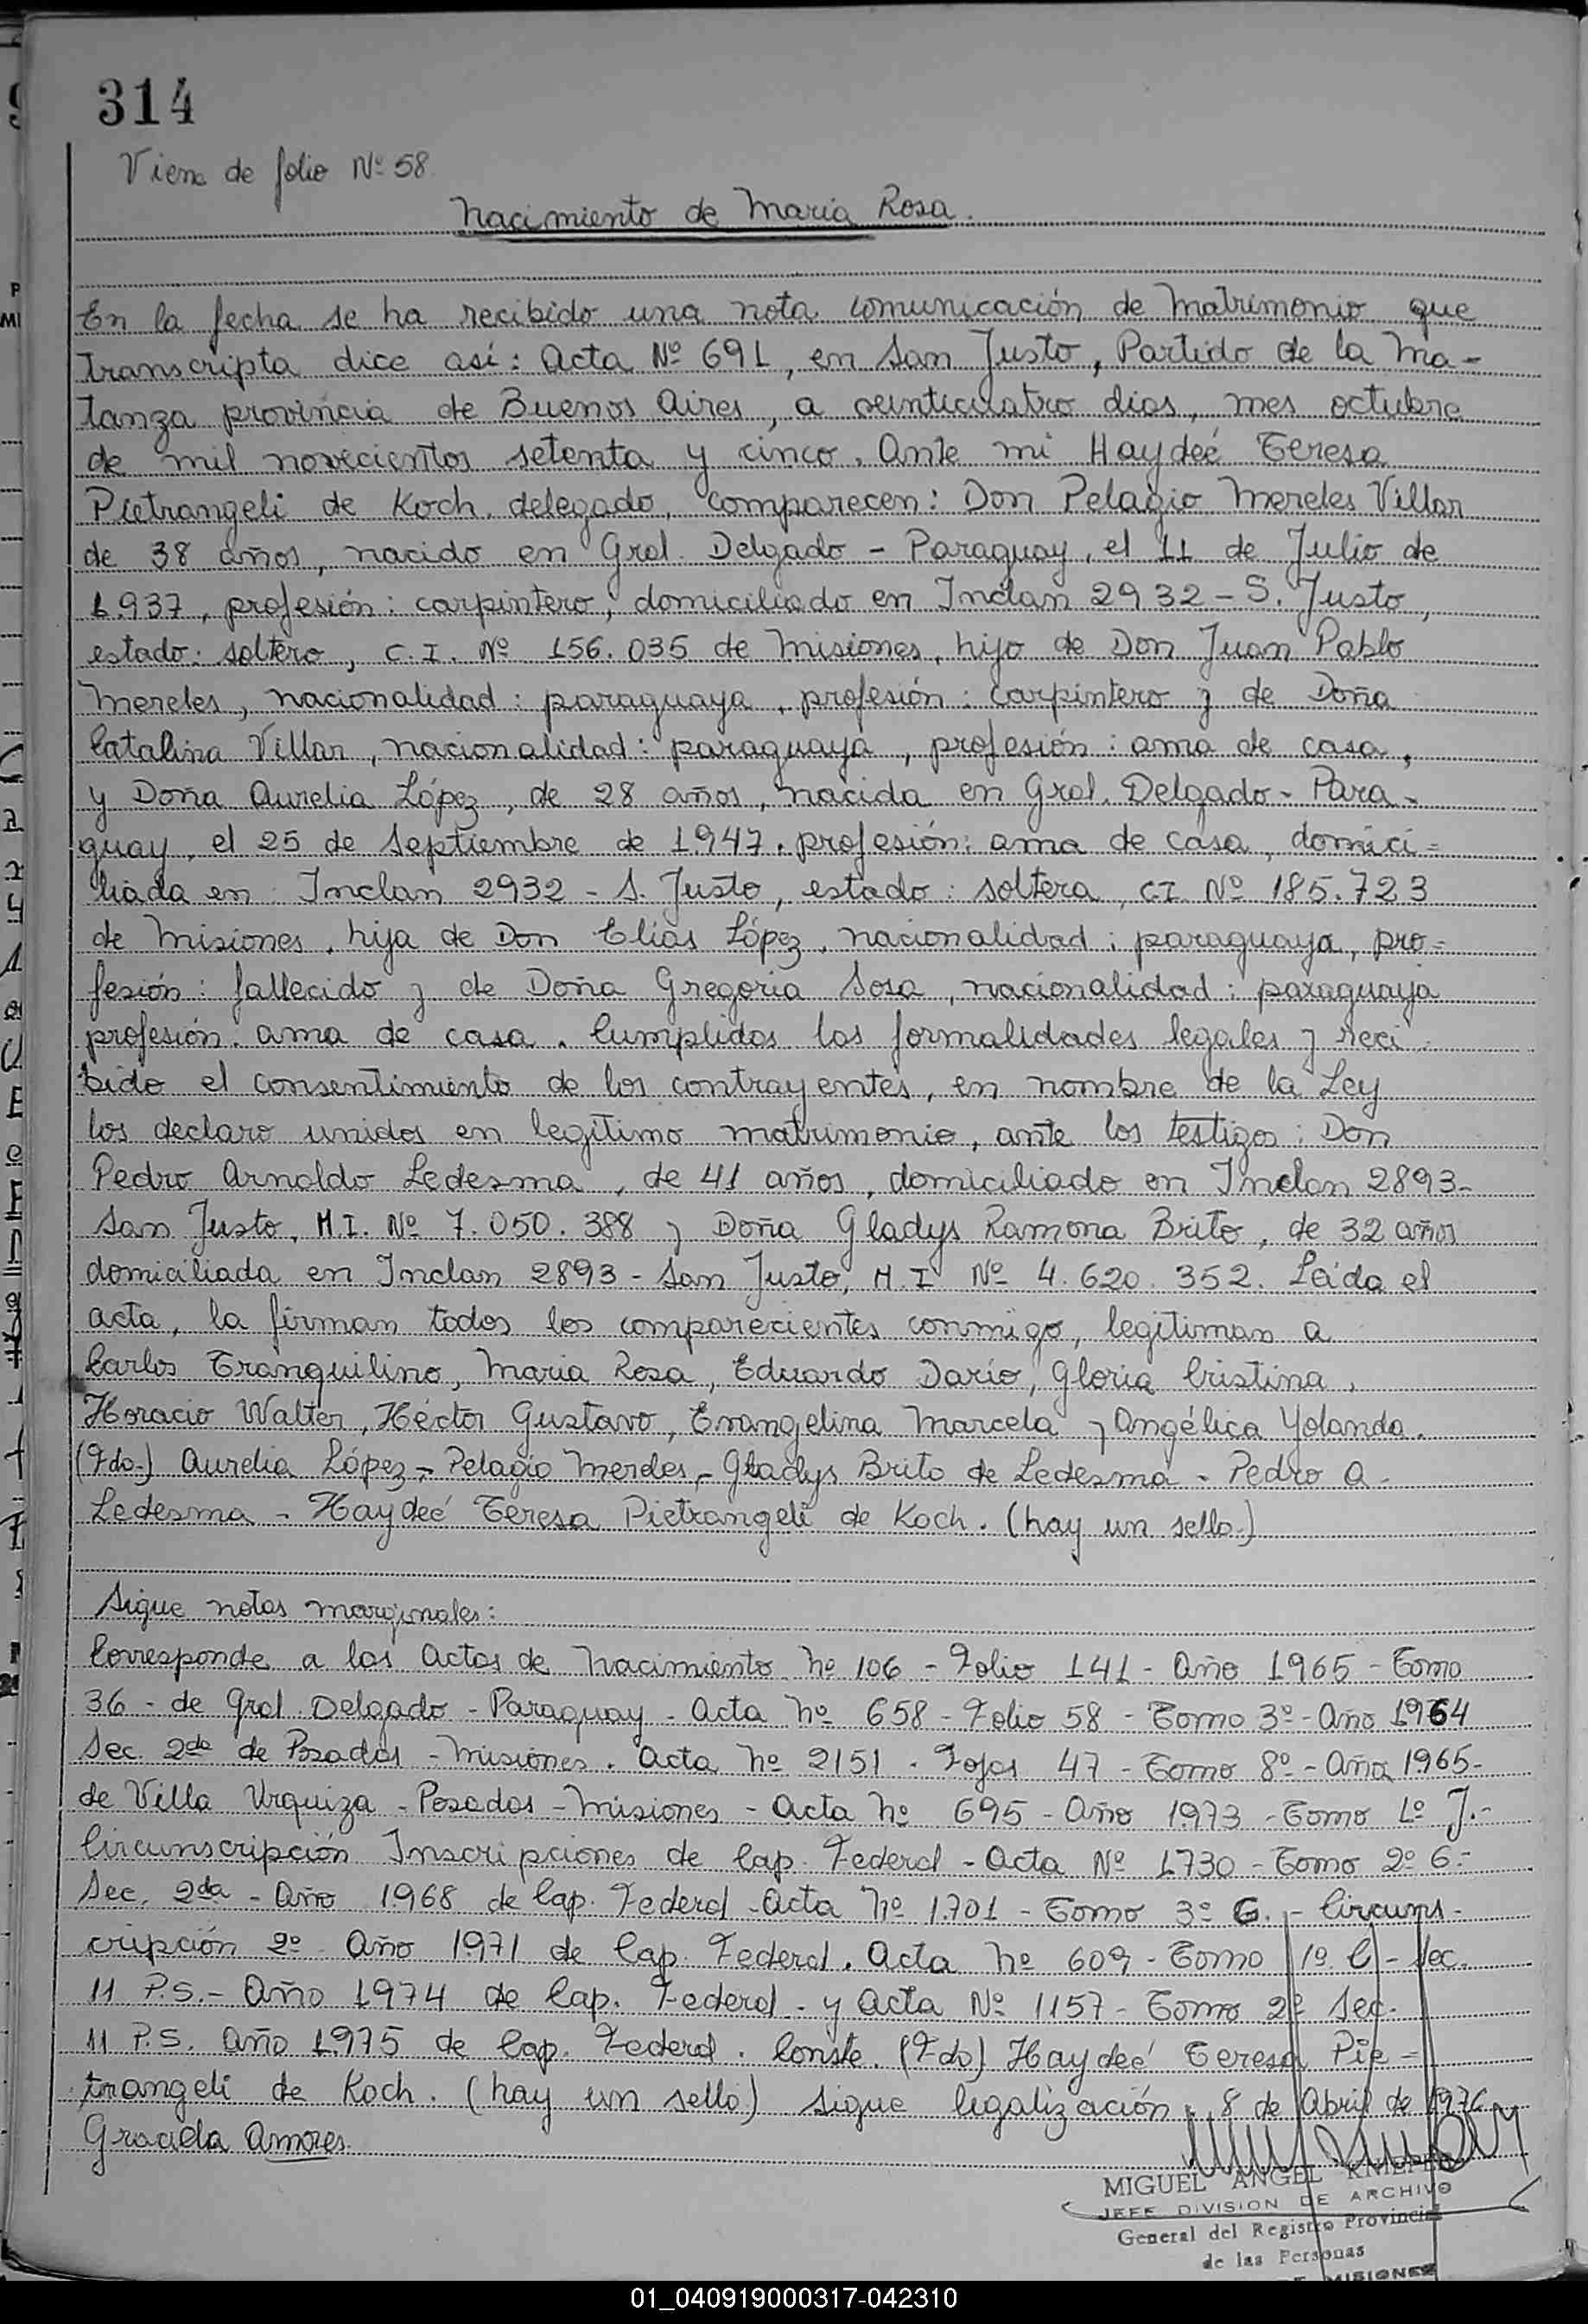 314
Viene de folio Nº 58.
Nacimiento de Maria Rosa.
En la fecha se ha recibido una nota comunicación de Matrimonio que
transcripta dice así: Acta Nº 691, en San Justo, Partido de la Ma-
tanza provincia de Buenos Aires, a veinticuatro dias, mes octubre
de mil novecientos setenta y cinco. Ante mi Haydeé Teresa
Pietrangeli de Koch, delegado, comparecen: Don Pelagio Mereles Villar
de 38 años, nacido en Gral. Delgado - Paraguay, el 11 de Julio de
1.937, profesión: carpintero, domiciliado en Inclan 2932 - S. Justo,
estado: soltero, C.I. Nº 156.035 de Misiones, hijo de Don Juan Pablo
Mereles, nacionalidad: paraguaya, profesión: carpintero y de Doña
Catalina Villar, nacionalidad: paraguaya, profesión: ama de casa,
y Doña Aurelia López, de 28 años, nacida en Gral. Delgado - Para-
guay, el 25 de Septiembre de 1.947, profesión: ama de casa, domici=
liada en Inclan 2932 - S. Justo, estado: soltera, C.I. Nº 185.723
de Misiones, hija de Don Elías López, nacionalidad: paraguaya, pro=
fesión: fallecido y de Doña Gregoria Sosa, nacionalidad: paraguaya
profesión: ama de casa. Cumplidas las formalidades legales y reci
bido el consentimiento de los contrayentes, en nombre de la Ley
los declaro unidos en legítimo matrimonio, ante los testigos: Don
Pedro Arnoldo Ledesma, de 41 años, domiciliado en Inclan 2893-
San Justo, M.I. Nº 7.050.388 y Doña Gladys Ramona Brito, de 32 años
domiciliada en Inclan 2893 - San Justo, M.I Nº 4.620.352. Leída el
acta, la firman todos los comparecientes conmigo, legitiman a
Carlos Tranquilino, Maria Rosa, Eduardo Darío, Gloria Cristina,
Horacio Walter, Héctor Gustavo, Evangelina Marcela y Angélica Yolanda.
(Fdo.) Aurelia López - Pelagio Mereles - Gladys Brito de Ledesma - Pedro A.
Ledesma - Haydeé Teresa Pietrangeli de Koch. (hay un sello.)
Sigue notas marginales:
Corresponde a las Actas de Nacimiento Nº 106 - Folio 141 - Año 1965 - Tomo
36 - de Gral. Delgado - Paraguay - Acta Nº 658 - Folio 58 - Tomo 3º - Año 1964
Sec. 2da de Posadas - Misiones. Acta Nº 2151 - Fojas 47 - Tomo 8º - Año 1965-
de Villa Urquiza - Posadas - Misiones - Acta Nº 695 - Año 1973 - Tomo 1º J.-
Circunscripción Inscripciones de Cap. Federal - Acta Nº 1730 - Tomo 2º G.-
Sec. 2da - Año 1.968 de Cap. Federal - Acta Nº 1.701 - Tomo 3º G. - Circuns-
cripción 2º Año 1971 de Cap. Federal. Acta Nº 609 - Tomo 1º C - Sec.
11 P.S. - Año 1974 de Cap. Federal - y Acta Nº 1157 - Tomo 2º Sec.
11 P.S. Año 1.975 de Cap. Federal. Conste. (Fdo) Haydeé Teresa Pie-
trangeli de Koch. (hay un sello) Sigue legalización. 8 de Abril de 1976
Graciela Amores
MIGUEL ANGEL
JEFE DIVISION DE ARCHIVO
General del Registro Provincial
de las Personas
MISIONES
01_040919000317-042310